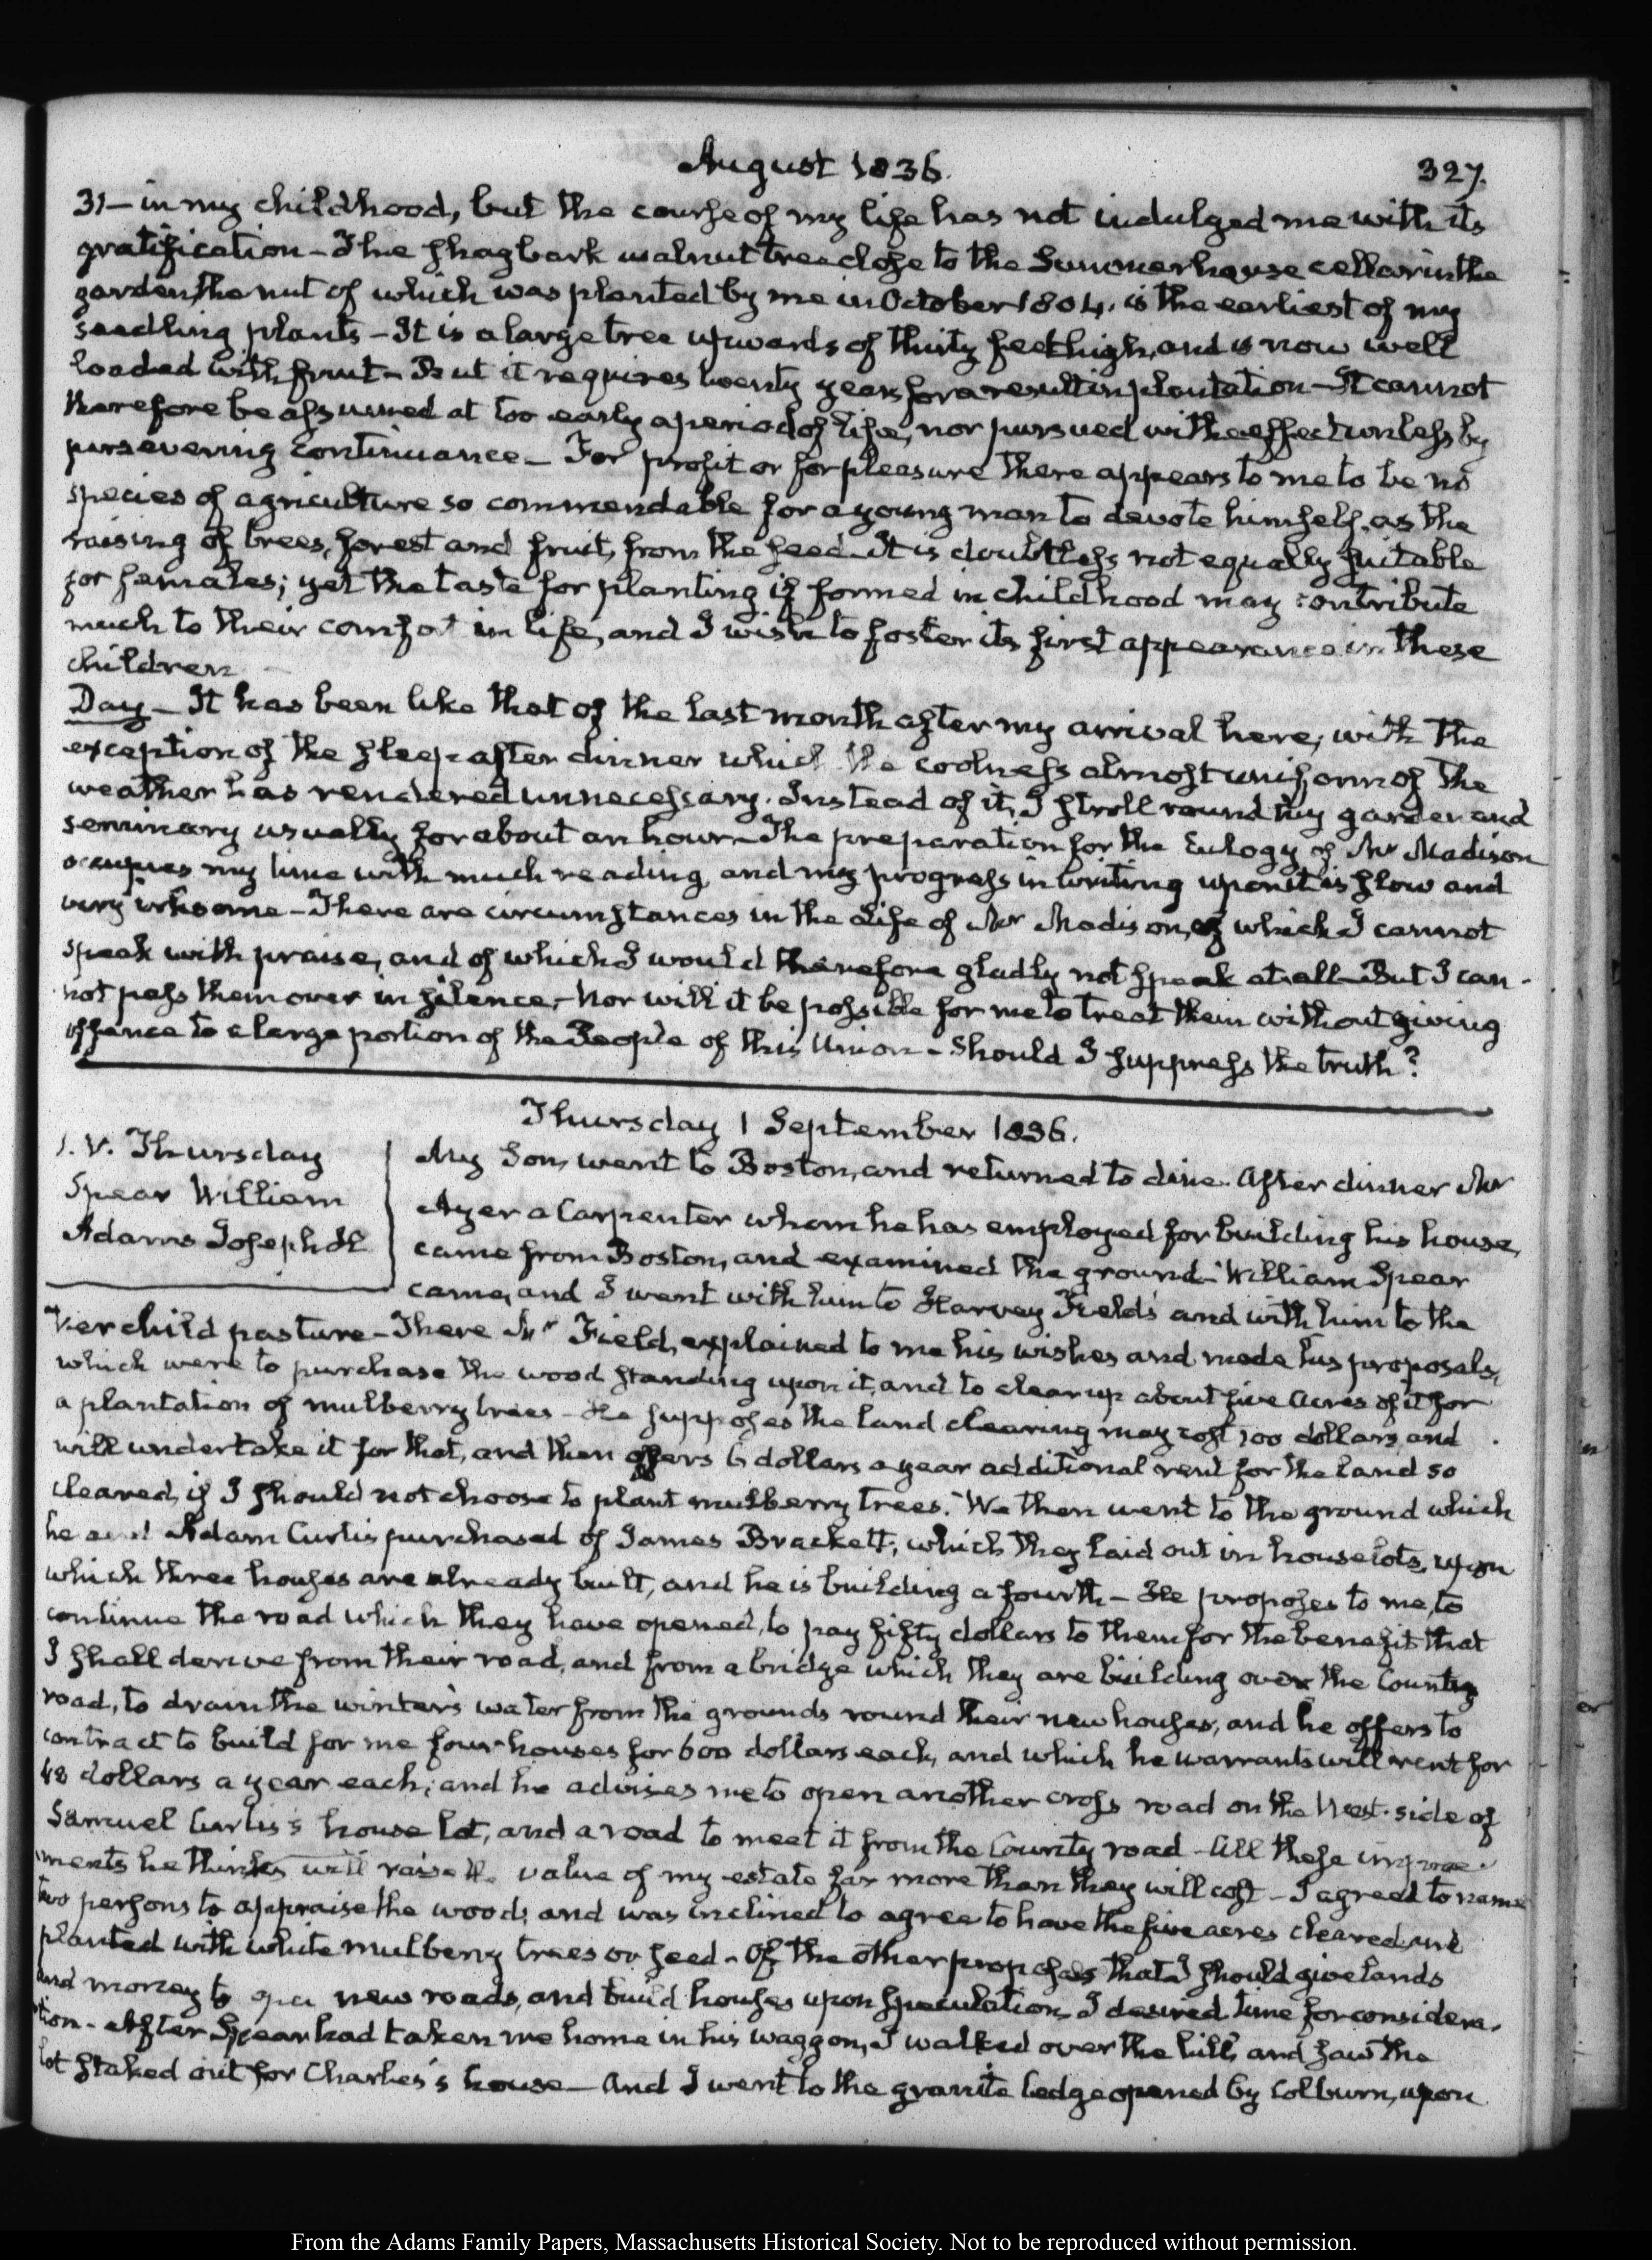 August 1836.
327.
31 — in my childhood, but the course of my life has not indulged me with its
gratification — The shagbark walnut tree close to the Summerhouse cellar in the
garden, the nut of which was planted by me in October 1804. is the earliest of my
seedling plants — It is a large tree upwards of thirty feet high, and is now well
loaded with fruit — But it requires twenty years for a result in plantation — It cannot
therefore be assumed at too early a period of life, nor pursued with effect unless by
persevering continuance — For profit or for pleasure there appears to me to be no
species of agriculture so commendable for a young man to devote himself, as the
raising of trees, forest and fruit, from the seed — It is doubtless not equally suitable
for females; yet the taste for planting if formed in childhood may contribute
much to their comfort in life, and I wish to foster its first appearance in these
children
Day — It has been like that of the last month after my arrival here, with the
exception of the sleep after dinner which the coolness almost uniform of the
weather has rendered unnecessary. Instead of it, I stroll round my garden and
seminary usually for about an hour — The preparation for the Eulogy of Mr Madison
occupies my time with much reading, and my progress in writing upon it is slow and
very irksome — There are circumstances in the Life of Mr Madison, of which I cannot
speak with praise, and of which I would therefore gladly not speak at all — But I can-
not pass them over in silence, — Nor will it be possible for me to treat them without giving
offence to a large portion of the People of this Union — Should I suppress the truth?
Thursday 1 September 1836.
1. V. Thursday
Spear William
Adams Joseph H
My Son, went to Boston, and returned to dine. After dinner Mr
Ayer a Carpenter whom he has employed for building his house,
came from Boston, and examined the ground — William Spear
came, and I went with him to Harvey Field's and with him to the
Verchild pasture — There Mr Field, explained to me his wishes and made his proposals,
which were to purchase the wood standing upon it, and to clear up about five Acres of it for
a plantation of mulberry trees — He supposes the land clearing may cost 100 dollars, and
will undertake it for that, and then offers 6 dollars a year additional rent for the land so
cleared, if I should not choose to plant mulberry trees. We then went to the ground which
he and Adam Curtis purchased of James Brackett, which they laid out in houselots, upon
which three houses are already built, and he is building a fourth — He proposes to me, to
continue the road which they have opened, to pay fifty dollars to them for the benefit that
I shall derive from their road, and from a bridge which they are building over the County
road, to drain the winter's water from the grounds round their new houses, and he offers to
contract to build for me four houses for 600 dollars each, and which he warrants will rent for
48 dollars a year each; and he advises me to open another cross road on the West side of
Samuel Curtis's house lot, and a road to meet it from the County road — All these improve-
ments he thinks will raise the value of my estate far more than they will cost — I agreed to name
two persons to appraise the wood; and was inclined to agree to have the five acres cleared and
planted with white mulberry trees or seed — Of the other proposals that I should give lands
and money to open new roads, and build houses upon speculation, I desired time for considera-
tion — After Spear had taken me home in his waggon, I walked over the hill, and saw the
lot staked out for Charles's house — And I went to the granite ledge opened by Colburn, upon
From the Adams Family Papers, Massachusetts Historical Society. Not to be reproduced without permission.